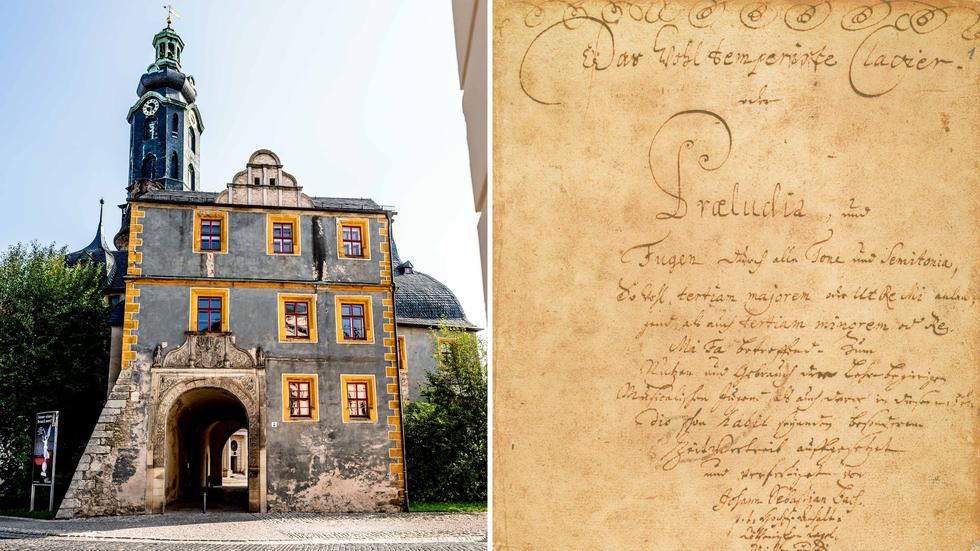 Das Wohl temperirte Clavier.
oder
Præludia, und
Fugen durch alle Tone und Semitonia,
So wohl tertiam majorem oder Ut Re Mi anlan-
gend, als auch tertiam minorem oder Re
Mi Fa betreffend. Zum
Nutzen und Gebrauch der Lehr-begierigen
Musicalischen Jugend, als auch derer in diesem
die schon habil seyenden besonderem
Zeitvertreib auffgesetzet
und verfertiget von
Johann Sebastian Bach.